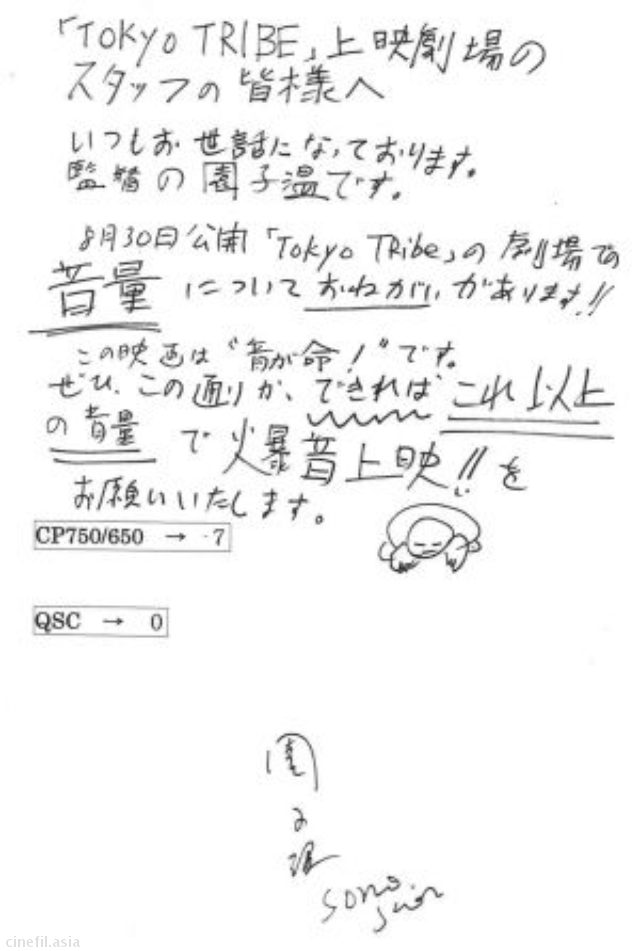 「TOKYO TRIBE」上映劇場の
スタッフの皆様へ
いつもお世話になっております。
監督の園子温です。
8月30日公開「Tokyo Tribe」の劇場での
音量についておねがいがあります!!
この映画は“音が命!”です。
ぜひ、この通りか、できればこれ以上
の音量で爆音上映!!を
お願いいたします。
CP750/650 → 7
QSC → 0
園
子
温
SONO
Sion
cinefil.asia